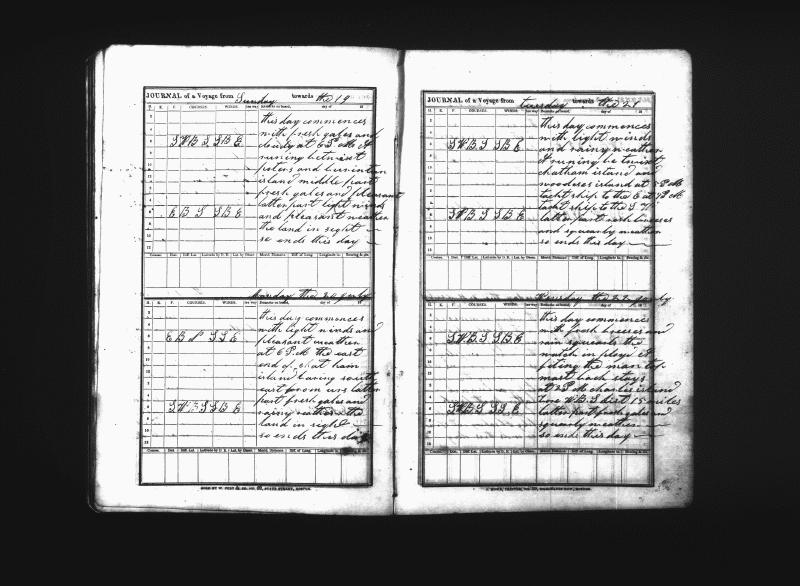 JOURNAL of a Voyage from Sunday towards the 19
H. K. F. COURSES. WINDS. Remarks on board, day of 18
this day commences
with fresh gales and
cloudy at 6 P M
S W B S S B E
runing betwixt
island middle part
fresh gales and pleasant
latter part light winds
E B S S B E
and pleasant weather
the land in sight
so ends this day
Course. Dist. Diff. Lat. Latitude by D. R. Lat. by Obser. Merid. Distance Diff. of Long. Longitude in. Bearing & dis.
Monday the 20
H. K. F. COURSES. WINDS. Remarks on board, day of 18
this day commences
with light winds and
E B S S E
pleasant weather
at 6 P M the east
end of chat ham
island baring south
east from us latter
part fresh gales and
S W B S S B E
rainy weather the
land in sight
so ends this day
Course. Dist. Diff. Lat. Latitude by D. R. Lat. by Obser. Merid. Distance Diff. of Long. Longitude in. Bearing & dis.
JOURNAL of a Voyage from tuesday towards the 21
H. K. F. COURSES. WINDS. Remarks on board, day of 18
this day commences
with light winds
S W B S S B E
and rainy weather
runing be twixt
chatham island and
island at 5 P M
tackt ship to the E at 7 P M
tackt ship to the S W
S W B S S B E
latter part fresh breeses
and squarly weather
so ends this day
Course. Dist. Diff. Lat. Latitude by D. R. Lat. by Obser. Merid. Distance Diff. of Long. Longitude in. Bearing & dis.
the 22
H. K. F. COURSES. WINDS. Remarks on board, day of 18
this day commences
with fresh breeses and
S W B S S B E
rain squarls the
fiting the main top
mast back stays
at 3 P M charles island
W B S dist 15 miles
S W B S S E
latter part fresh gales and
squarly weather
so ends this day
Course. Dist. Diff. Lat. Latitude by D. R. Lat. by Obser. Merid. Distance Diff. of Long. Longitude in. Bearing & dis.